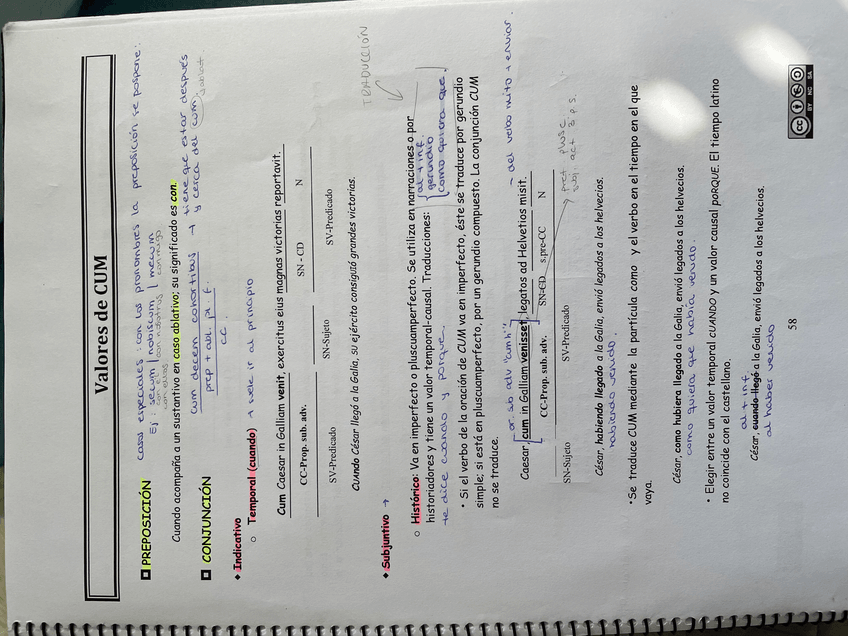 Valores de CUM
casos especiales: con los pronombres la preposición se pospone:
PREPOSICIÓN Ej secum nobiscum / mecum
con él con nosotros conmigo
con ellos
Cuando acompaña a un sustantivo en caso ablativo; su significado es con.
cum decem cohortibus → tiene que estar después
prep + abl. pl. f. y cerca del cum.
CC ablat.
CONJUNCIÓN
Indicativo
Temporal (cuando) → suele ir al principio
Cum Caesar in Galliam venit, exercitus eius magnas victorias reportavit.
CC-Prop. sub. adv. SN - CD N
SN-Sujeto
SV-Predicado SV-Predicado
Cuando César llegó a la Galia, su ejército consiguió grandes victorias.
TRADUCCIÓN
Subjuntivo →
Histórico: Va en imperfecto o pluscuamperfecto. Se utiliza en narraciones o por
historiadores y tiene un valor temporal-causal. Traducciones:
al + inf.
gerundio
como quiera que.
te dice cuando y porque.
• Si el verbo de la oración de CUM va en imperfecto, éste se traduce por gerundio
simple; si está en pluscuamperfecto, por un gerundio compuesto. La conjunción CUM
no se traduce.
or. sub adv "cum h" → del verbo mito = enviar.
Caesar, cum in Galliam venisset, legatos ad Helvetios misit.
CC-Prop. sub. adv. SN-CD s.pre-CC N
SN-Sujeto SV-Predicado
pret plusc
subj. act 3 p. s.
César, habiendo llegado a la Galia, envió legados a los helvecios.
habiendo venido.
• Se traduce CUM mediante la partícula como y el verbo en el tiempo en el que
vaya.
César, como hubiera llegado a la Galia, envió legados a los helvecios.
como quiera que había venido.
• Elegir entre un valor temporal CUANDO y un valor causal PORQUE. El tiempo latino
no coincide con el castellano.
al + inf.
César, cuando llegó a la Galia, envió legados a los helvecios.
al haber venido
58
cc
BY NC SA